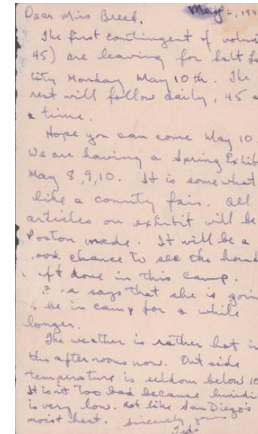 May 6, 194
Dear Miss Breed,
The first contingent of
45) are leaving for Salt
City Monday May 10th. The
rest will follow daily, 45 a
a time.
Hope you can come May 10
We are having a Spring Exhib
May 8, 9, 10. It is somewhat
like a county fair. All
articles on exhibit will be
Poston made. It will be a
ood chance to see the hand
ft done in this camp.
says that she is goin
be in camp for a while
longer.
The weather is rather hot in
the afternoons now. Outside
temperature is seldom below 10
It isn't too bad because
is very low. not like San Diego's
moist heat. Sincerely yours